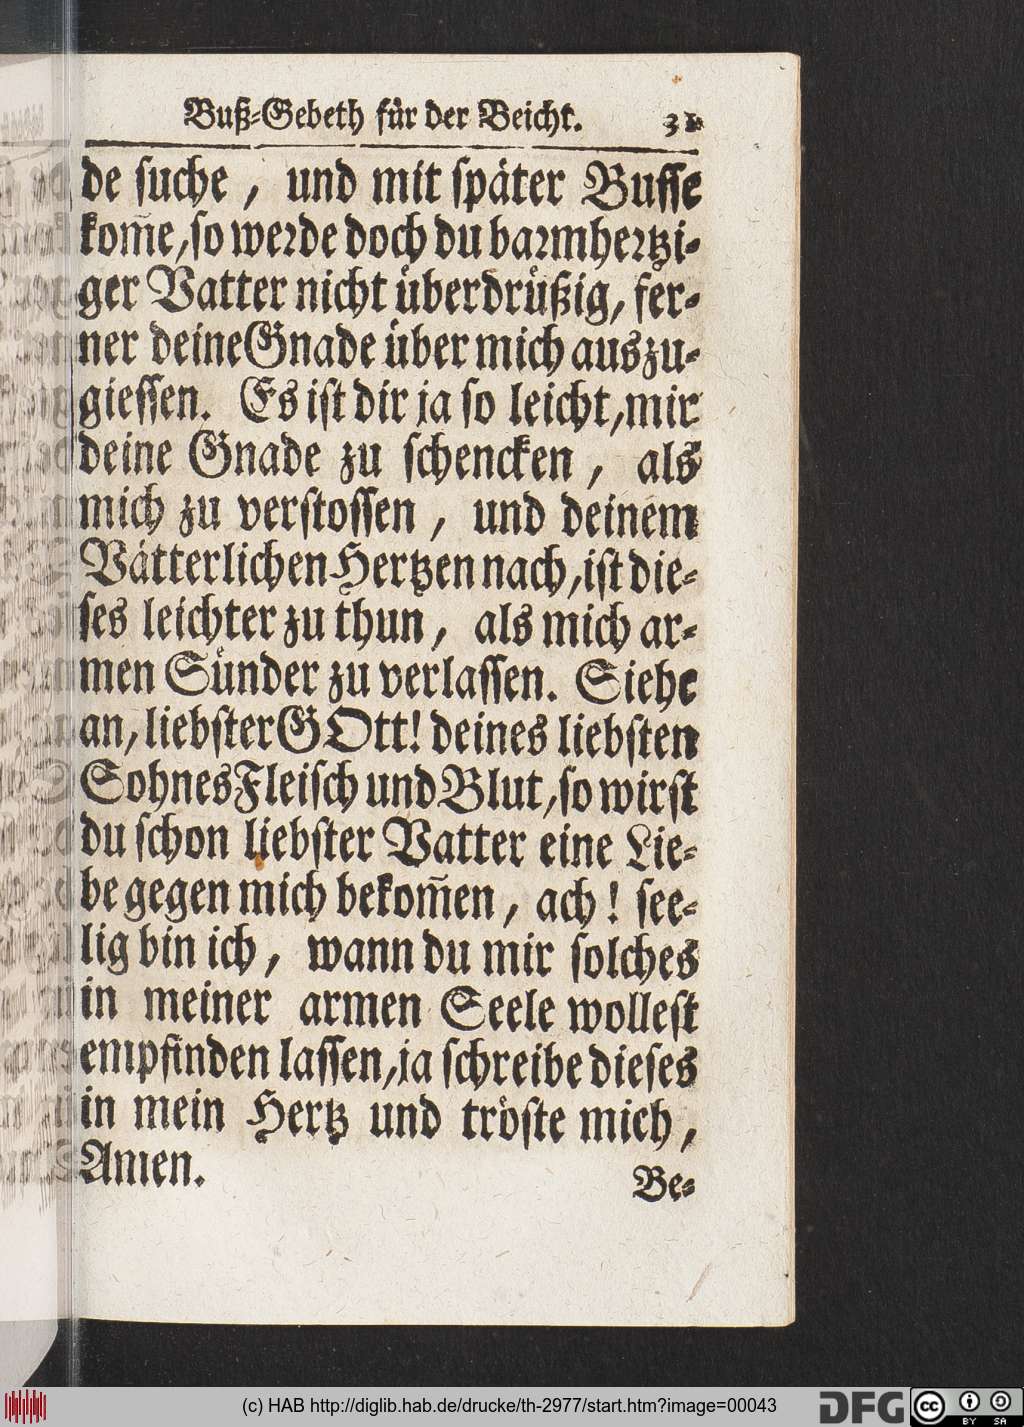 Buß-Gebeth für der Beicht. 31
de suche, und mit später Busse
kom̃e, so werde doch du barmhertzi-
ger Vatter nicht überdrüßig, fer-
ner deine Gnade über mich auszu-
giessen. Es ist dir ja so leicht, mir
deine Gnade zu schencken, als
mich zu verstossen, und deinem
Vätterlichen Hertzen nach, ist die-
ses leichter zu thun, als mich ar-
men Sünder zu verlassen. Siehe
an, liebster GOtt! deines liebsten
Sohnes Fleisch und Blut, so wirst
du schon liebster Vatter eine Lie-
be gegen mich bekom̃en, ach! see-
lig bin ich, wann du mir solches
in meiner armen Seele wollest
empfinden lassen, ja schreibe dieses
in mein Hertz und tröste mich,
Amen.
Be-
(c) HAB http://diglib.hab.de/drucke/th-2977/start.htm?image=00043
DFG
cc BY SA